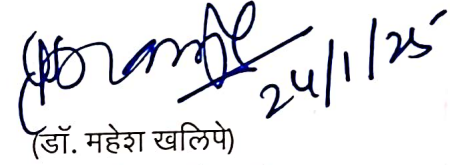 24/1/25
(डॉ. महेश खलिपे)